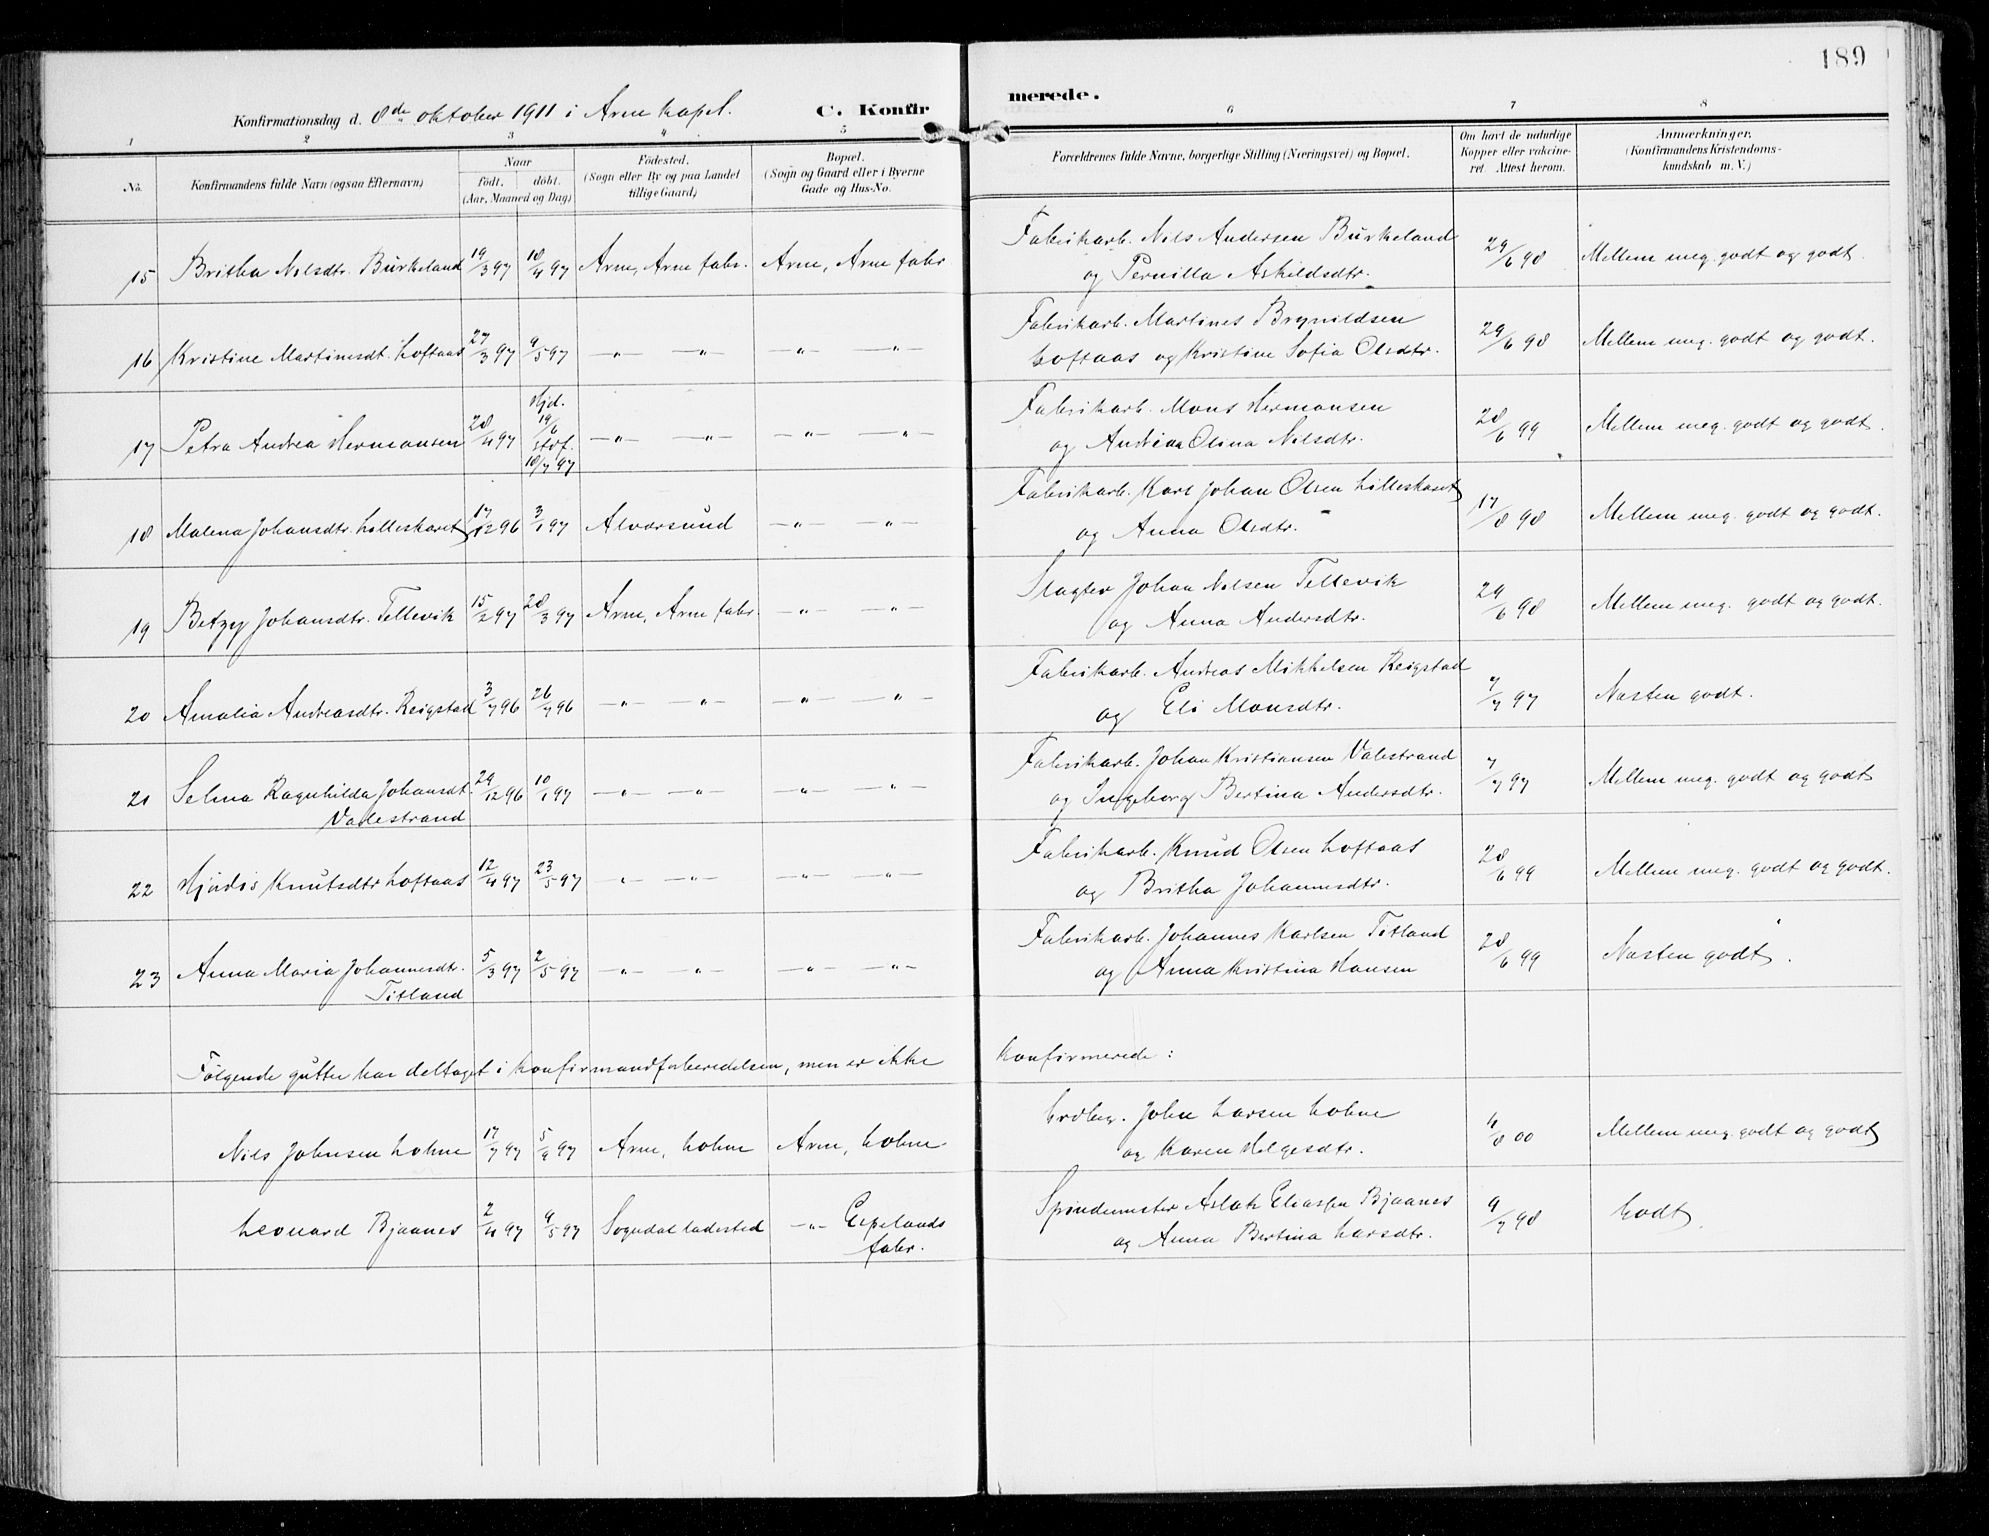 189
Konfirmationsdag d. 8de oktober 1911 i Arne kapel.
C. Konfirmerede.
1 2 3 4 5 6 7 8
No. Konfirmandens fulde Navn (ogsaa Efternavn)
Naar født, døbt. (Aar, Maaned og Dag)
Fødested. (Sogn eller By og paa Landet tillige Gaard)
Bopæl. (Sogn og Gaard eller i Byerne Gade og Hus-No.
Forældrenes fulde Navne, borgerlige Stilling (Næringsvei) og Bopæl.
Om havt de naturlige Kopper eller vakcineret. Attest herom.
Anmærkninger. (Konfirmandens Kristendomskundskab m. V.)
15 Britha Nilsdtr. Burkeland 19/3 97 18/4 97 Arne, Arne fabr. Arne, Arne fabr Fabrikarb. Nils Andersen Burkeland 29/6 98 Mellem meg. godt og godt.
og Pernilla Askildsdtr.
16 Kristine Martinusdt. Loftaas 27/3 97 9/5 97 —„— —„— —„— —„— Fabrikarb. Martines Brynildsen 29/6 98 Mellem meg. godt og godt.
Loftaas og Kristine Sofia Olsdtr.
17 Petra Andrea Hermansen 28/4 97 Hjd. 19/6 stdf. 18/7 97 —„— —„— —„— —„— Fabrikarb. Mons Hermansen 28/6 99 Mellem meg. godt og godt.
og Andrea Olina Nilsdtr.
18 Malena Johansdtr. Lilleskaret 17/12 96 3/1 97 Alversund —„— —„— Fabrikarb. Karl Johan Olsen Lilleskaret 17/8 98 Mellem meg. godt og godt.
og Anna Olsdtr.
19 Betzy Johansdtr. Tellevik 15/2 97 28/3 97 Arne, Arne fabr. —„— —„— Slagter Johan Nilsen Tellevik 29/6 98 Mellem meg. godt og godt.
og Anna Andersdtr.
20 Amalia Andreasdtr. Reigstad 3/7 96 26/7 96 —„— —„— —„— —„— Fabrikarb. Andreas Mikkelsen Reigstad 7/7 97 Næsten godt.
og Eli Monsdtr.
21 Selma Ragnhilda Johansdt. 29/12 96 10/1 97 —„— —„— —„— —„— Fabrikarb. Johan Kristiansen Valestrand 7/7 97 Mellem meg. godt og godt
Valestrand og Ingeborg Bertina Andersdtr.
22 Hjördis Knutsdtr Loftaas 12/4 97 23/5 97 —„— —„— —„— —„— Fabrikarb. Knud Olsen Loftaas 28/6 99 Mellem meg. godt og godt.
og Britha Johannesdtr.
23 Anna Maria Johannesdtr. 5/3 97 2/5 97 —„— —„— —„— —„— Fabrikarb. Johannes Karlsen Titland 28/6 99 Næsten godt.
Titland og Anna Kristina Hansen
Følgende gutter har deltaget i konfirmandforberedelsen, men er ikke konfirmerede:
Nils Johnsen Lohne 17/7 97 5/9 97 Arne, Lohne Arne, Lohne Grdbr. John Larsen Lohne 4/8 00 Mellem meg. godt og godt
og Karen Helgesdtr.
Leonard Bjaanes 2/4 97 9/5 97 Sogndal ladested —„— Espelands fabr. Spindemester Aslak Eliassen Bjaanes 9/7 98 Godt.
og Anna Bertina Larsdtr.